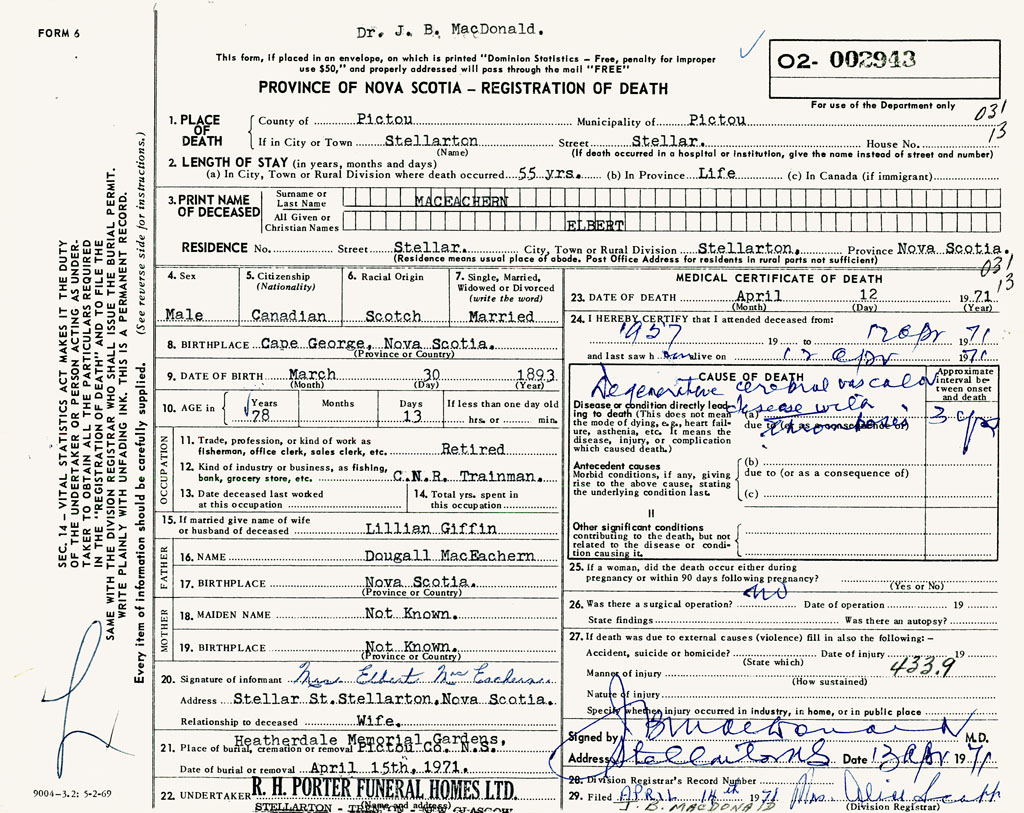 FORM 6
Dr. J. B. MacDonald.
This form, if placed in an envelope, on which is printed "Dominion Statistics – Free, penalty for improper
use $50," and properly addressed will pass through the mail "FREE"
PROVINCE OF NOVA SCOTIA – REGISTRATION OF DEATH
02- 002943
For use of the Department only
031
13
1. PLACE OF DEATH
County of Pictou Municipality of Pictou
If in City or Town Stellarton Street Stellar. House No.
(Name) (If death occurred in a hospital or institution, give the name instead of street and number)
2. LENGTH OF STAY (in years, months and days)
(a) In City, Town or Rural Division where death occurred 55 yrs. (b) In Province Life (c) In Canada (if immigrant)
3. PRINT NAME OF DECEASED
Surname or Last Name MACEACHERN
All Given or Christian Names ELBERT
RESIDENCE No. Street Stellar. City, Town or Rural Division Stellarton. Province Nova Scotia.
(Residence means usual place of abode. Post Office Address for residents in rural parts not sufficient)
031
13
4. Sex
Male
5. Citizenship
(Nationality)
Canadian
6. Racial Origin
Scotch
7. Single, Married,
Widowed or Divorced
(write the word)
Married
8. BIRTHPLACE Cape George, Nova Scotia.
(Province or Country)
9. DATE OF BIRTH March 30 1893
(Month) (Day) (Year)
10. AGE in Years Months Days If less than one day old
78 13 hrs. or min.
OCCUPATION
11. Trade, profession, or kind of work as
fisherman, office clerk, sales clerk, etc. Retired
12. Kind of industry or business, as fishing,
bank, grocery store, etc. C.N.R. Trainman.
13. Date deceased last worked
at this occupation
14. Total yrs. spent in
this occupation
15. If married give name of wife
or husband of deceased Lillian Giffin
FATHER
16. NAME Dougall MacEachern
17. BIRTHPLACE Nova Scotia.
(Province or Country)
MOTHER
18. MAIDEN NAME Not Known.
19. BIRTHPLACE Not Known.
(Province or Country)
20. Signature of informant Mrs. Elbert MacEachern
Address Stellar St. Stellarton, Nova Scotia.
Relationship to deceased Wife.
Heatherdale Memorial Gardens.
21. Place of burial, cremation or removal Pictou CO. N.S.
Date of burial or removal April 15th, 1971.
22. UNDERTAKER R. H. PORTER FUNERAL HOMES LTD.
(Name and address)
STELLARTON - TRENTON - NEW GLASGOW
MEDICAL CERTIFICATE OF DEATH
23. DATE OF DEATH April 12 1971
(Month) (Day) (Year)
24. I HEREBY CERTIFY that I attended deceased from:
1957 19 to 12 Apr 1971
and last saw h im alive on 12 Apr 1971
CAUSE OF DEATH
Approximate
interval be-
tween onset
and death
Degenerative cerebral vascular
Disease or condition directly lead-
ing to death (This does not mean
the mode of dying, e.g., heart fail-
ure, asthenia, etc. It means the
disease, injury, or complication
which caused death.)
(a) disease with
due to (or as a consequence of)
thrombosis
3 yrs
Antecedent causes
Morbid conditions, if any, giving
rise to the above cause, stating
the underlying condition last.
(b)
due to (or as a consequence of)
(c)
II
Other significant conditions
contributing to the death, but not
related to the disease or condi-
tion causing it.
25. If a woman, did the death occur either during
pregnancy or within 90 days following pregnancy?
(Yes or No)
26. Was there a surgical operation? no Date of operation 19
State findings Was there an autopsy?
27. If death was due to external causes (violence) fill in also the following: –
Accident, suicide or homicide? Date of injury 19
(State which)
433.9
Manner of injury
(How sustained)
Nature of injury
Specify whether injury occurred in industry, in home, or in public place
Signed by J B MacDonald M.D.
Address Stellarton NS Date 13 Apr 1971
28. Division Registrar's Record Number
29. Filed APRIL 14th 1971 Mrs. Alice Scapp
J. B. MACDONALD (Division Registrar)
SEC. 14 – VITAL STATISTICS ACT MAKES IT THE DUTY
OF THE UNDERTAKER OR PERSON ACTING AS UNDER-
TAKER TO OBTAIN ALL THE PARTICULARS REQUIRED
IN THE "REGISTRATION OF DEATH" AND TO FILE THE
SAME WITH THE DIVISION REGISTRAR WHO SHALL ISSUE THE BURIAL PERMIT.
WRITE PLAINLY WITH UNFADING INK. THIS IS A PERMANENT RECORD.
Every item of information should be carefully supplied. (See reverse side for instructions.)
9004-3.2: 5-2-69